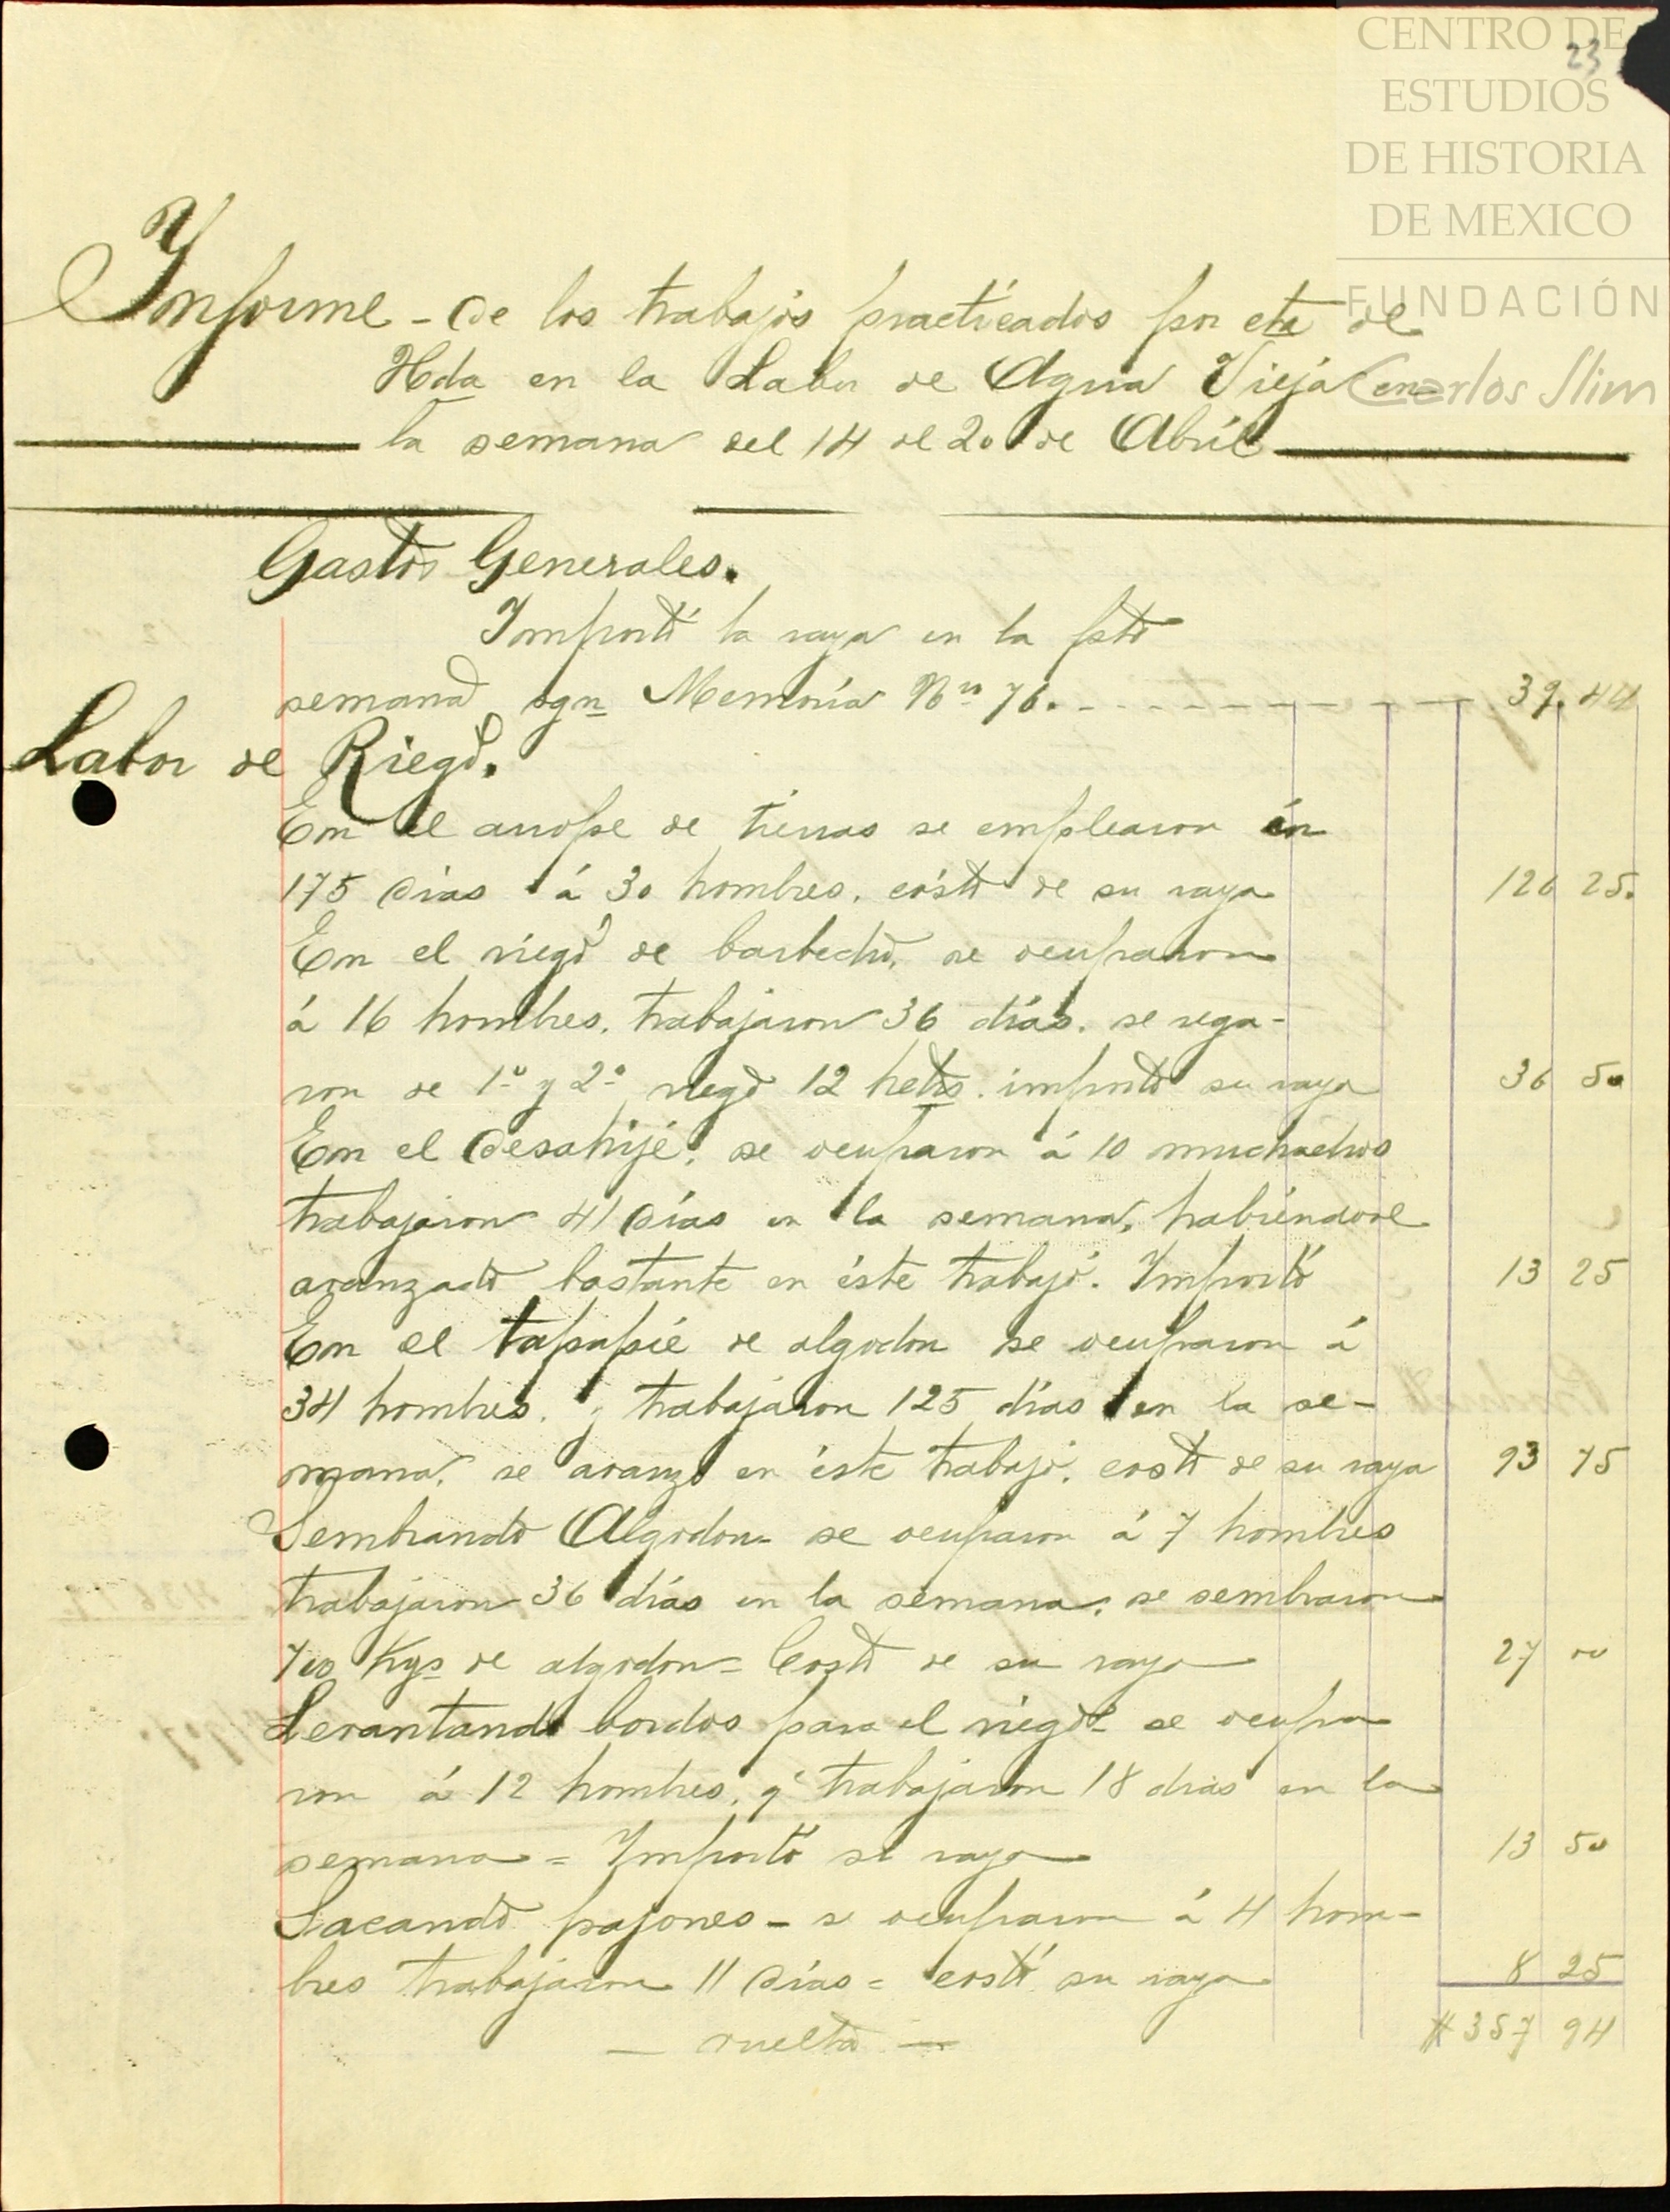 CENTRO DE
ESTUDIOS
DE HISTORIA
DE MEXICO
FUNDACIÓN
Carlos Slim
23
Informe - de los trabajos practicados por eta de
Hda en la Labor de Agua Vieja en
la semana del 14 al 20 de Abril
Gastos Generales.
Importó la raya en la pte
semana sgn Memoria No 76. 39.44
Labor de Riego.
En el arrope de tierras se emplearon en
175 dias á 30 hombres. costo de su raya 126 25.
En el riego de barbecho, se ocuparon
á 16 hombres. trabajaron 36 días. se rega-
ron de 1o y 2o riego 12 hets. importó su raya 36 50
En el desahijé, se ocuparon á 10 muchachos
trabajaron 41 días en la semana, habiéndose
avanzado bastante en éste trabajo. Importó 13 25
En el tapapié de algodon se ocuparon á
34 hombres. y trabajaron 125 días en la se-
mana. se avanzó en éste trabajo. costo de su raya 93 75
Sembrando Algodon- se ocuparon á 7 hombres
trabajaron 36 días en la semana; se sembraron
700 Kgs de algodon = Costo de su raya 27 00
Levantando bordos para el riego- se ocupa
ron á 12 hombres, q' trabajaron 18 dias en la
semana = Importó su raya 13 50
Sacando pajones - se ocuparon á 4 hom-
bres trabajaron 11 días = costó su raya 8 25
— vuelta — $ 357 94